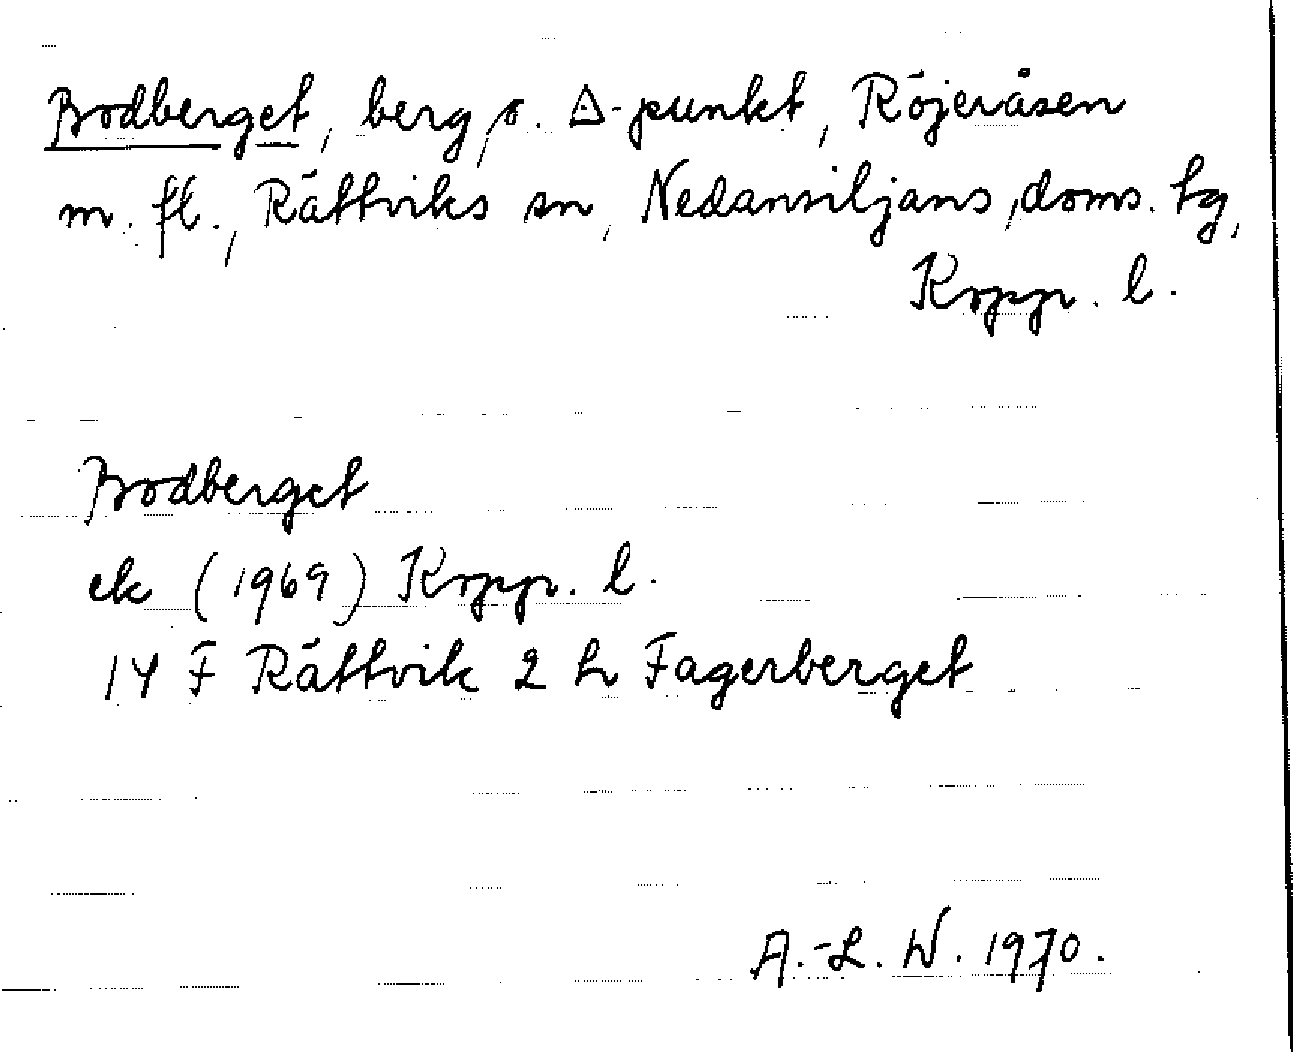 Bodberget, berg, o. ∆-punkt, Röjeråsen
m. fl., Rättviks sn, Nedansiljans, doms. tg,
Kopp. l.
Bodberget
ek (1969) Kopp. l.
14 F Rättvik 2 h Fagerberget
A.-L. W. 1970.